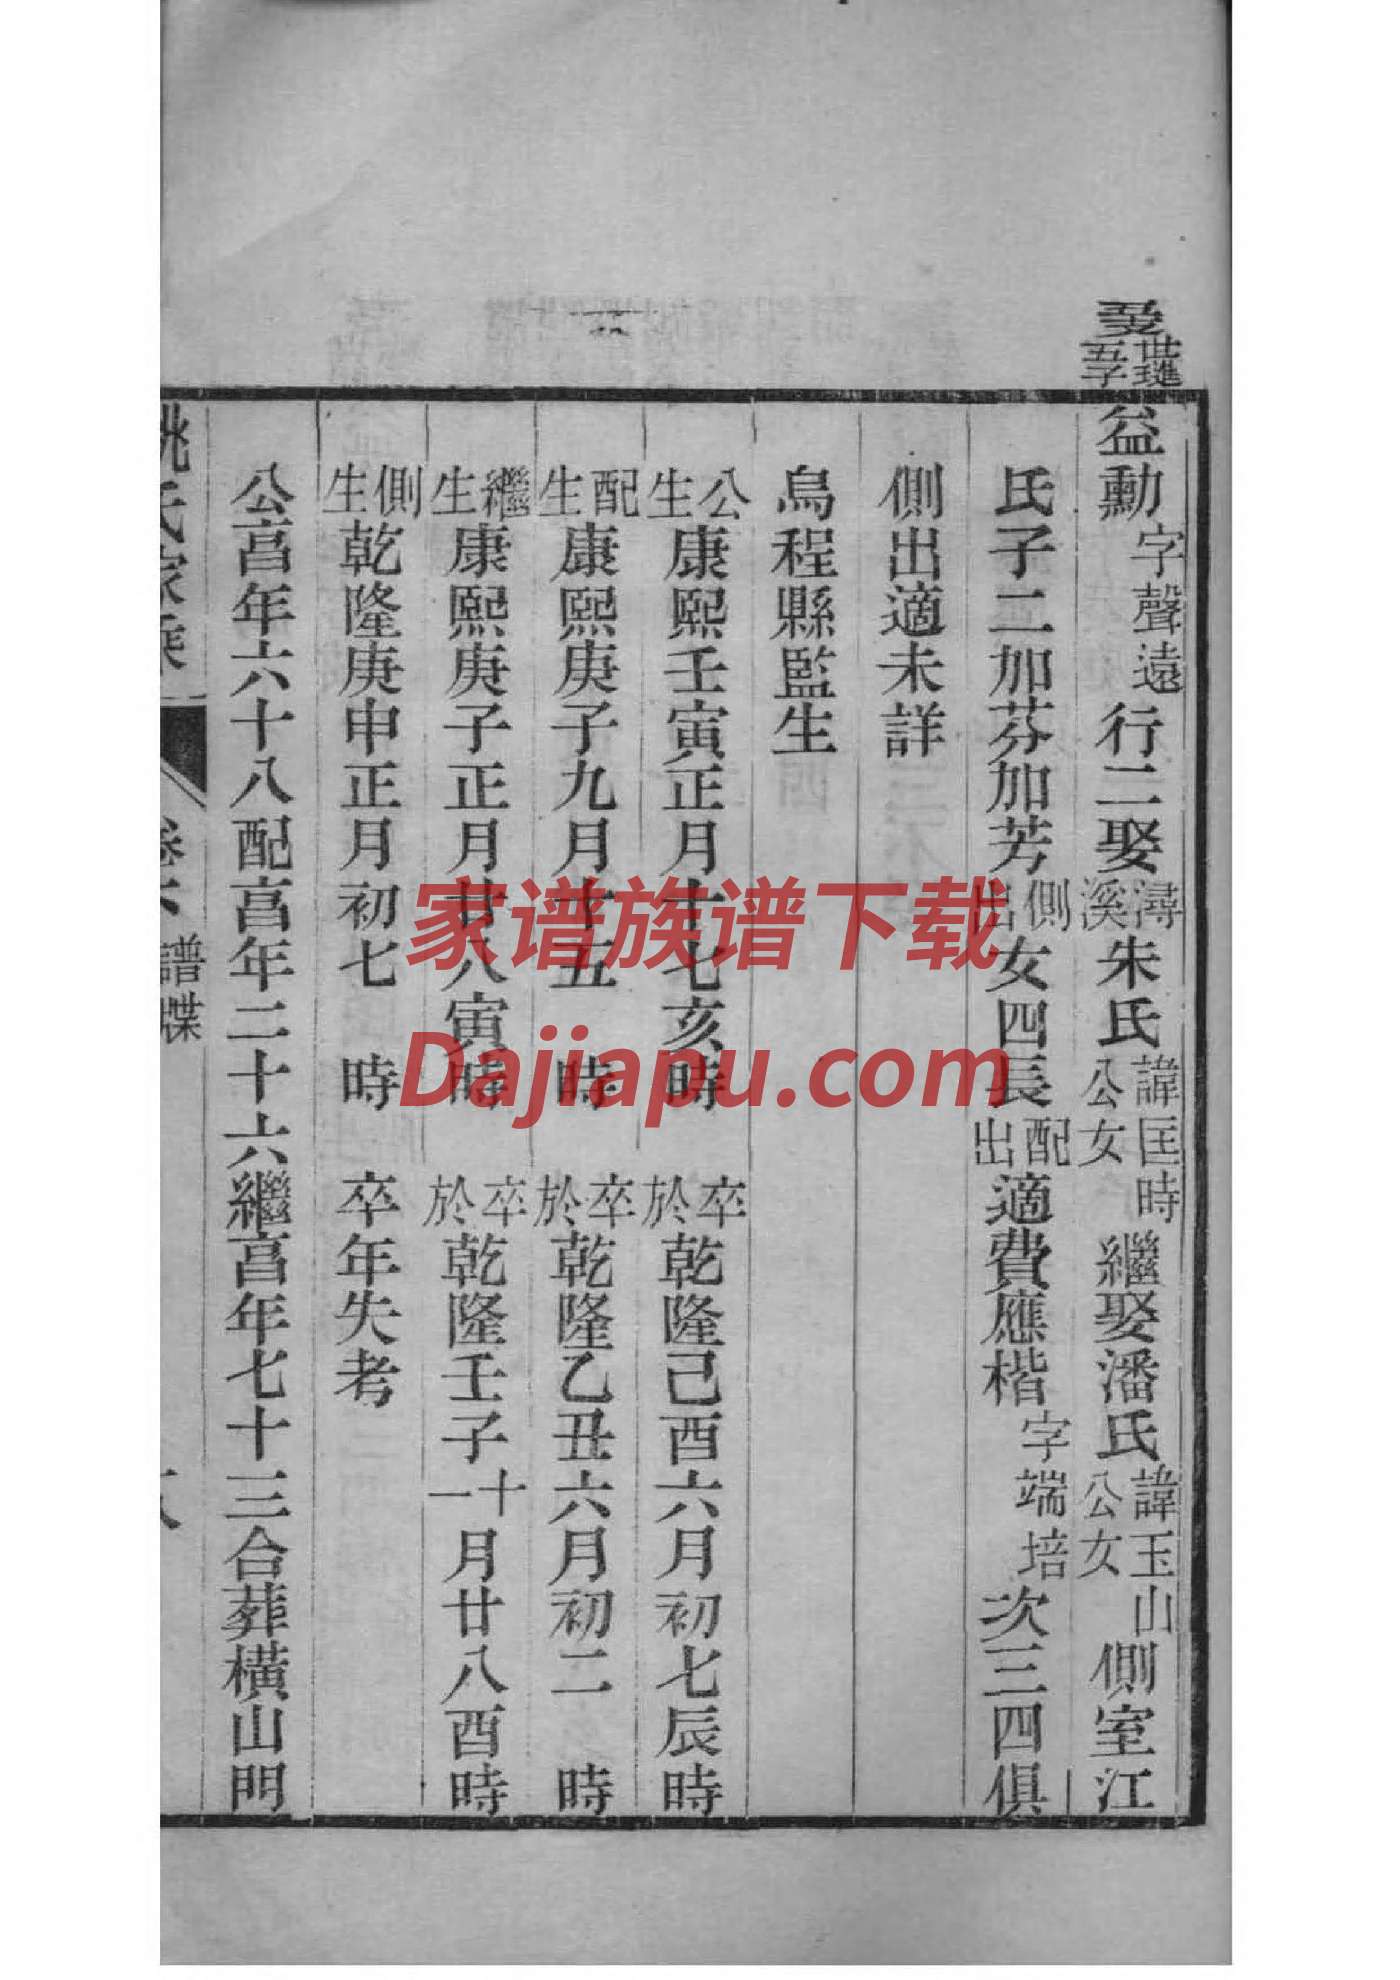 世璡
五子
益勳字聲遠行二娶潯溪朱氏諱匡時公女繼娶潘氏諱玉山公女側室江
氏子二加芬加芳側出女四長配出適費應楷字端培次三四俱
側出適未詳
烏程縣監生
公生康熙壬寅正月十七亥時 卒於乾隆己酉六月初七辰時
配生康熙庚子九月十五 時 卒於乾隆乙丑六月初二 時
繼生康熙庚子正月廿八寅時 卒於乾隆壬子十一月廿八酉時
側生乾隆庚申正月初七 時 卒年失考
公亯年六十八配亯年二十六繼亯年七十三合葬橫山門
姚氏家乘 卷六 譜牒
家谱族谱下载
Dajiapu.com